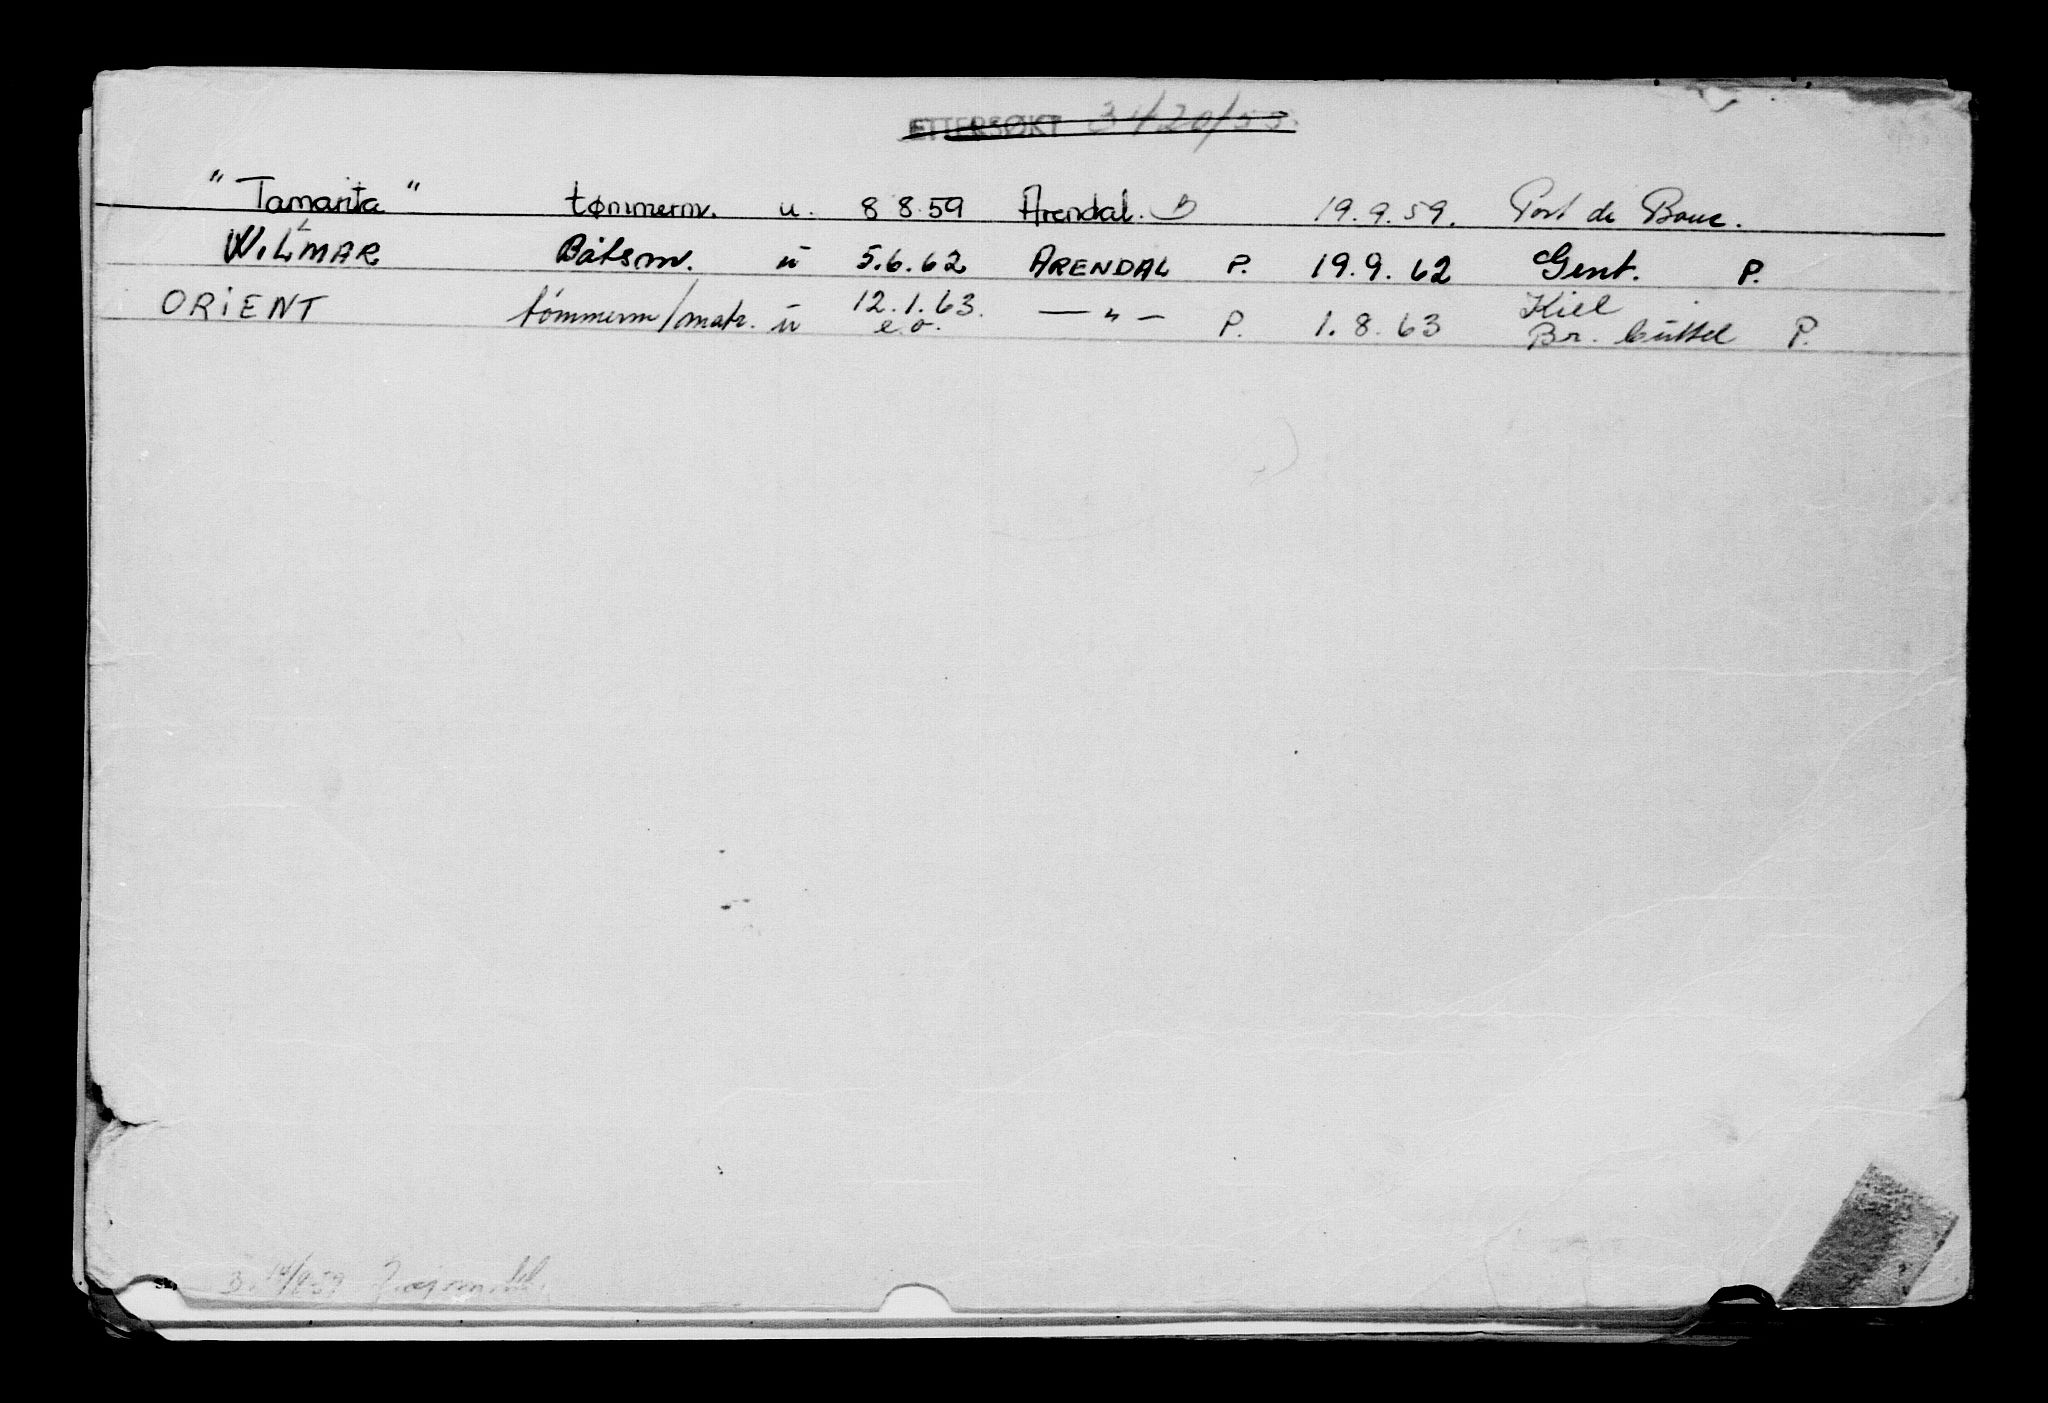 ETTERSØKT
"Tamarita" tømmerm. u. 8 8.59 Arendal. B 19.9.59. Port de Bouc.
WILMAR Båtsm. u 5.6.62 ARENDAL P. 19.9.62 Gent. P.
ORIENT tømmerm/matr. u 12.1.63. e.o. — " — P. 1.8.63 Kiel Br. büttel P.